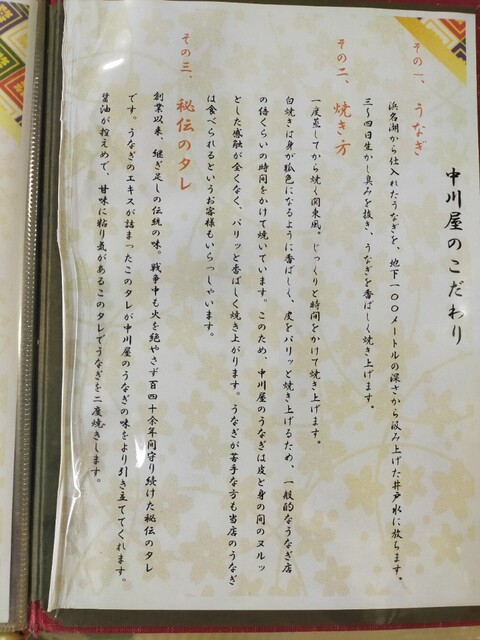 中川屋のこだわり
その一、うなぎ
浜名湖から仕入れたうなぎを、地下一〇〇メートルの深さから汲み上げた井戸水に放ちます。
三〜四日生かし臭みを抜き、うなぎを香ばしく焼き上げます。
その二、焼き方
一度蒸してから焼く関東風。じっくりと時間をかけて焼き上げます。
白焼きは身が狐色になるように香ばしく、皮をパリッと焼き上げるため、一般的なうなぎ店
の倍くらいの時間をかけて焼いています。このため、中川屋のうなぎは皮と身の間のヌルッ
とした感触が全くなく、パリッと香ばしく焼き上がります。うなぎが苦手な方も当店のうなぎ
は食べられるというお客様もいらっしゃいます。
その三、秘伝のタレ
創業以来、継ぎ足しの伝統の味。戦争中も火を絶やさず百四十余年間守り続けた秘伝のタレ
です。うなぎのエキスが詰まったこのタレが中川屋のうなぎの味をより引き立ててくれます。
醤油が控えめで、甘味に粘り気があるこのタレでうなぎを二度焼きします。